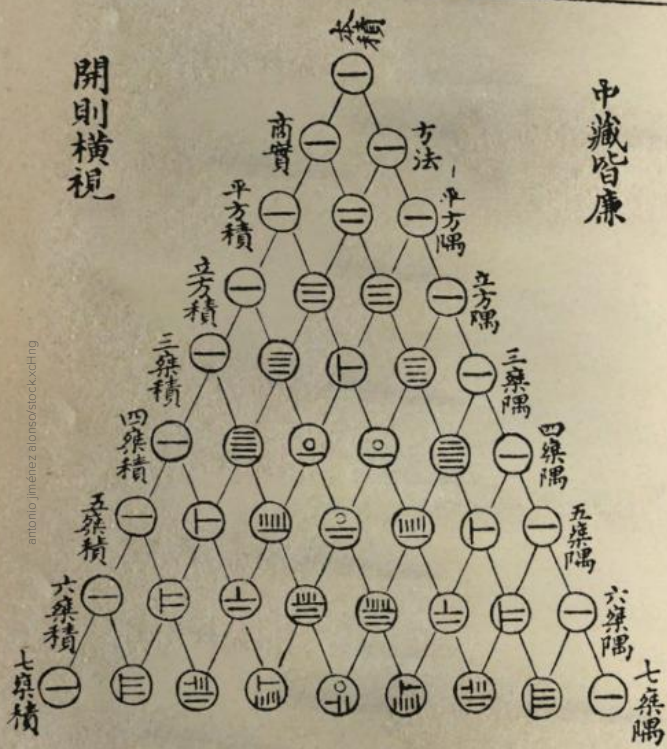 本積
中藏皆廉
開則橫視
商實
方法
平方積
平方隅
立方積
立方隅
三乗積
三乗隅
四乗積
四乗隅
五乗積
五乗隅
六乗積
六乗隅
七乗積
七乗隅
antonio jiménez alonso/stock.xcHng